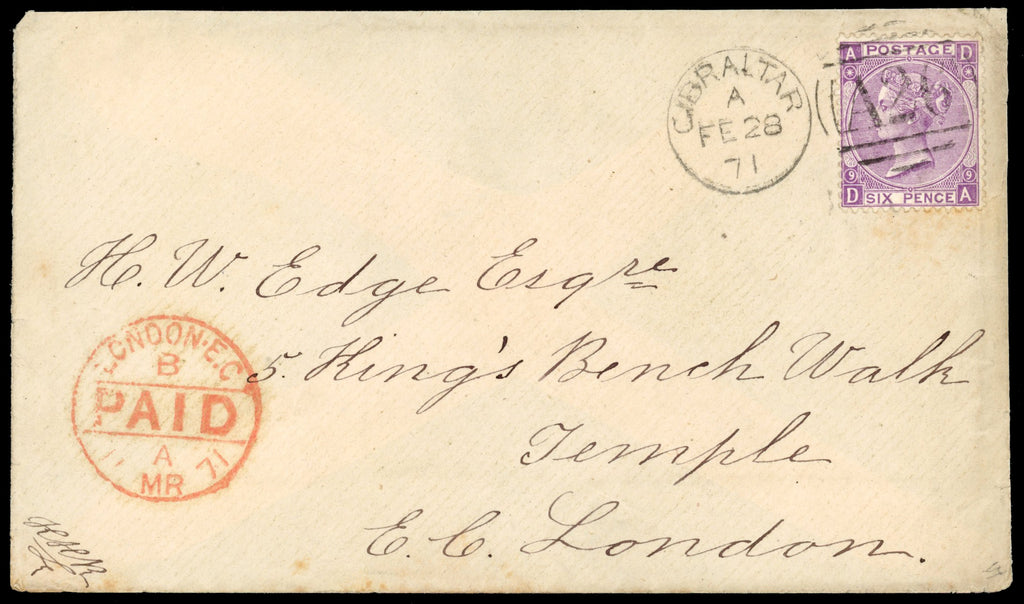 GIBRALTAR
A
FE 28
71
A POSTAGE D
A26
9 9
D SIX PENCE A
H. W. Edge Esqre
5. King's Bench Walk
Temple
E. C. London.
LONDON·E.C
B
PAID
11 A 71
MR